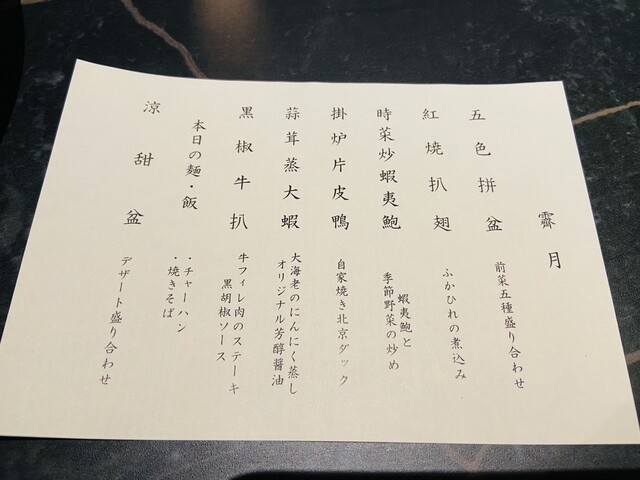 霽月
五色拼盆
前菜五種盛り合わせ
紅燒扒翅
ふかひれの煮込み
時菜炒蝦夷鮑
蝦夷鮑と
季節野菜の炒め
掛炉片皮鴨
自家焼き北京ダック
蒜茸蒸大蝦
大海老のにんにく蒸し
オリジナル芳醇醤油
黒椒牛扒
牛フィレ肉のステーキ
黒胡椒ソース
本日の麺・飯
・チャーハン
・焼きそば
涼甜盆
デザート盛り合わせ